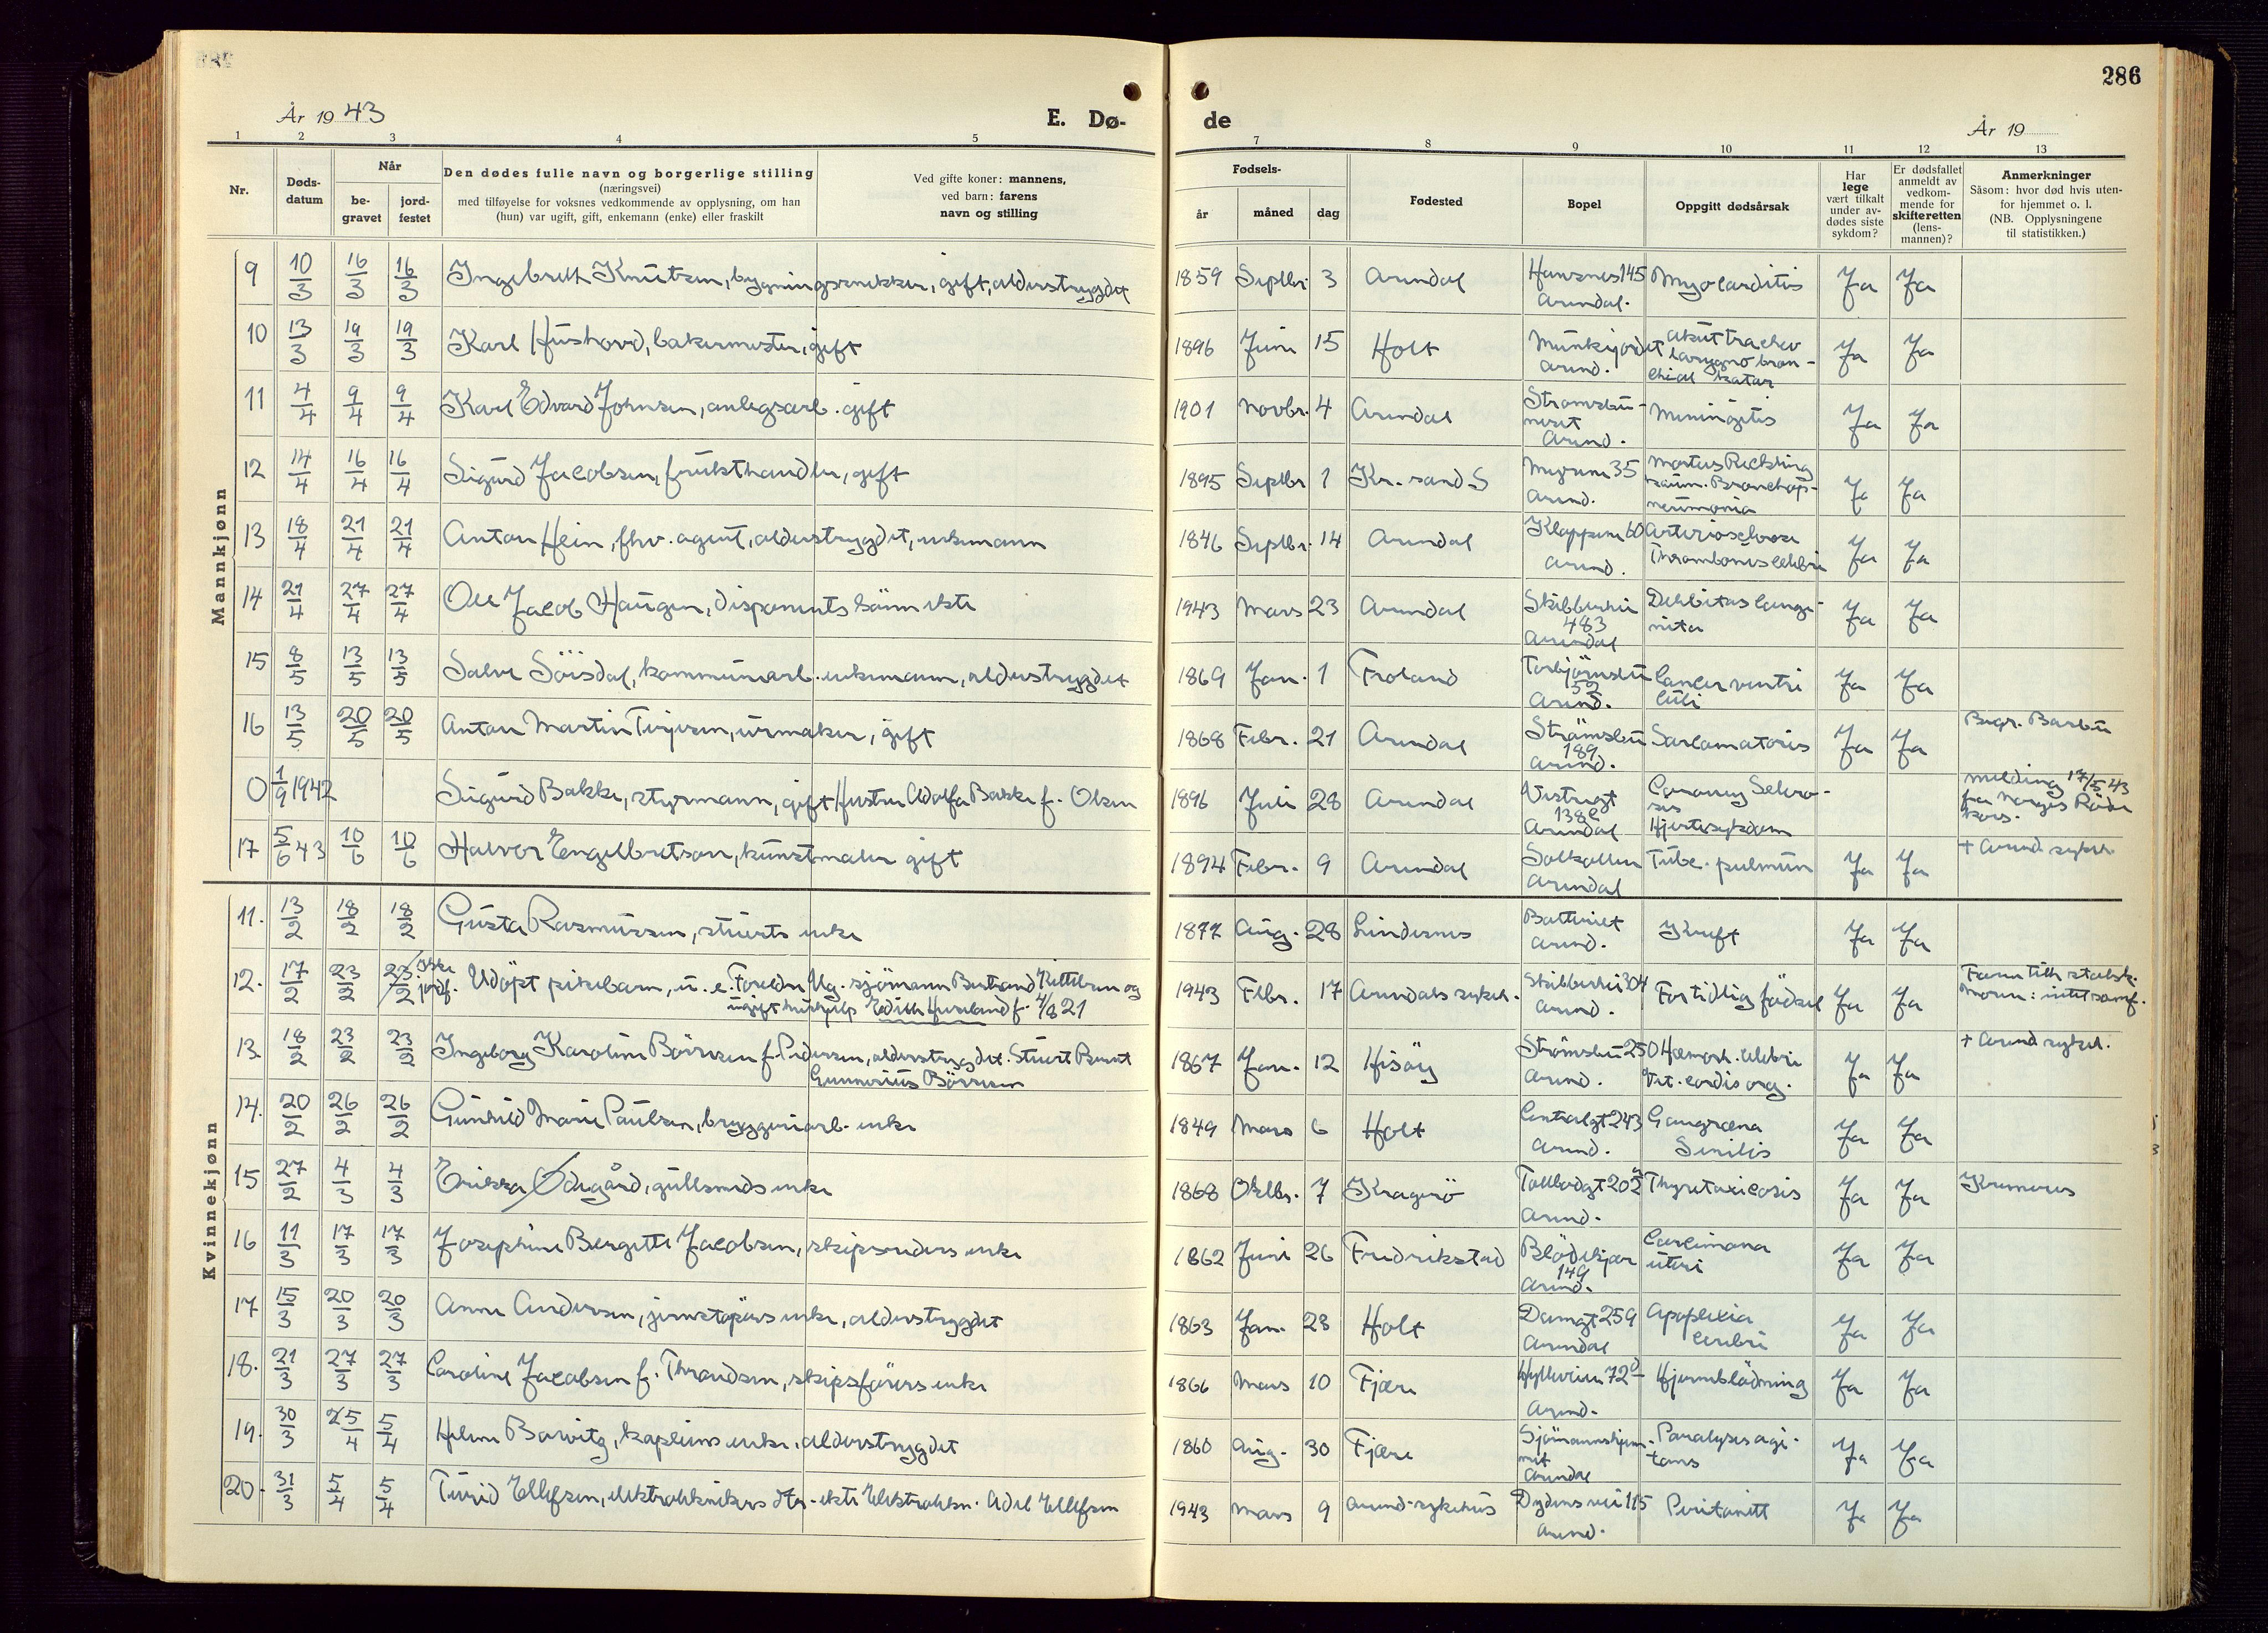 286
År 1943
E. Dø-
de
År 19
1 2 3 4 5 7 8 9 10 11 12 13
Nr.
Døds-
datum
Når
be-
gravet
jord-
festet
Den dødes fulle navn og borgerlige stilling
(næringsvei)
med tilføyelse for voksnes vedkommende av opplysning, om han
(hun) var ugift, gift, enkemann (enke) eller fraskilt
Ved gifte koner: mannens,
ved barn: farens
navn og stilling
Fødsels-
år måned dag
Fødested
Bopel
Oppgitt dødsårsak
Har
lege
vært tilkalt
under av-
dødes siste
sykdom?
Er dødsfallet
anmeldt av
vedkom-
mende for
skifteretten
(lens-
mannen)?
Anmerkninger
Såsom: hvor død hvis uten-
for hjemmet o. l.
(NB. Opplysningene
til statistikken.)
Mannkjønn
9 10/3 16/3 16/3 Ingebreth Knutsen, bygningssnekker, gift, alderstrygdet 1859 Septbr. 3 Arendal 145 Arendal. Myocarditis Ja Ja
10 13/3 19/3 19/3 Karl Hushovd, bakermester, gift 1896 Juni 15 Holt Munkejordet Arend. akut tracheo laryngo bron-
chial katar Ja Ja
11 4/4 9/4 9/4 Karl Edvard Johnsen, anlegsarb. gift 1901 Novbr. 4 Arendal Strømsbu-
neset Arend. Meningitis Ja Ja
12 14/4 16/4 16/4 Sigurd Jacobsen, frukthandler, gift 1895 Septbr 1 Kr.sand S Myrene 35 Arend. Morbus Recklinghaum. Bronchop-
neumonia Ja Ja
13 18/4 21/4 21/4 Anton Hein, fhv. agent, alderstrygdet, enkemann 1846 Septbr. 14 Arendal Kloppene 60 Arend. Arteriosclerose Thrombosis celebri Ja Ja
14 21/4 27/4 27/4 Ole Jacob Haugen, disponents sønn ekte 1943 Mars 23 Arendal Skibbuhei 483 Arendal Debilitas congenita Ja Ja
15 8/5 13/5 13/5 Salve Söisdal, kommunearb. enkemann, alderstrygdet 1869 Jan. 1 Froland Torbjörnsbu 52 Arend. Cancer ventriculi Ja Ja
16 13/5 20/5 20/5 Anton Martin Terjesen, urmaker, gift 1868 Febr. 21 Arendal Strømsbu 189 Arend. Sarcomatosis Ja Ja Begr. Barbu
0 1/9 1942 Sigurd Bakke, styrmann, gift Hustru Adolfa Bakke f. Olsen 1896 Juli 28 Arendal Vestregt 138c Arendal Coronary Sclero-
sis Hjertesykdom Melding 17/5 43 fra Norges Røde Kors.
17 5/6 43 10/6 10/6 Halvor Engelbretson, kunstmaler gift 1894 Febr. 9 Arendal Solkollen Arendal Tube. pulmun Ja Ja + Arend sykeh.
Kvinnekjønn
11. 13/2 18/2 18/2 Gusta Rasmussen, stuerts enke 1877 Aug. 28 Lindesnes Batteriet Arend. Kreft Ja Ja
12. 17/2 23/2 23/2 ikke jordf. Udöpt pikebarn, u. e. Foreldre Ug. sjömann Bertrand Kittelsen og
ugift hushjelp Edith Huseland f. 4/8 21 1943 Febr. 17 Arendals sykeh. Skibbuhei 304 Arend. For tidlig födsel Ja Ja Faren tilh statsk. Moren: intet samf.
13 18/2 23/2 23/2 Ingeborg Karoline Börresen f. Pedersen, alderstrygdet. Stuert Bernt
Gunnerius Börresen 1867 Jan. 12 Hisöy Strømsbu 250 Arend. Hæmorh. celebri Vit. cordis org. Ja Ja + Arend sykeh.
14. 20/2 26/2 26/2 Gunhild Marie Paulsen, bryggeriarb. enke 1849 Mars 6 Holt Centralgt 243 Arend. Gangræna Senilis Ja Ja
15 27/2 4/3 4/3 Erikka Ødegård, gullsmeds enke 1868 Oktbr. 7 Kragerö Tollbodgt 202 Arend. Thyretoxicosis Ja Ja Kremeres
16 11/3 17/3 17/3 Josephine Bergette Jacobsen, skipsreders enke 1862 Juni 26 Fredrikstad Blödekjær 149 Arend. Carcinoma uteri Ja Ja
17 15/3 20/3 20/3 Anne Andersen, jernstöpers enke, alderstrygdet 1863 Jan. 28 Holt Damgt 259 Arendal Apoplexia cerebri Ja Ja
18. 21/3 27/3 27/3 Caroline Jacobsen f. Throndsen, skipsförers enke 1866 Mars 10 Fjære Hylleveien 72 Arend. Hjerneblödning Ja Ja
19. 30/3 5/4 5/4 Helene Barwitz, kapteins enke, alderstrygdet 1860 Aug. 30 Fjære Sjömannshjem-
met Arendal Paralysis agi-
tans Ja Ja
20. 31/3 5/4 5/4 Turid Ellefsen, elektroteknikers dtr. ekte Elektrotekn. Adel Ellefsen 1943 Mars 9 Arend. sykehus Dydens vei 115 Arend. Peritonitt Ja Ja